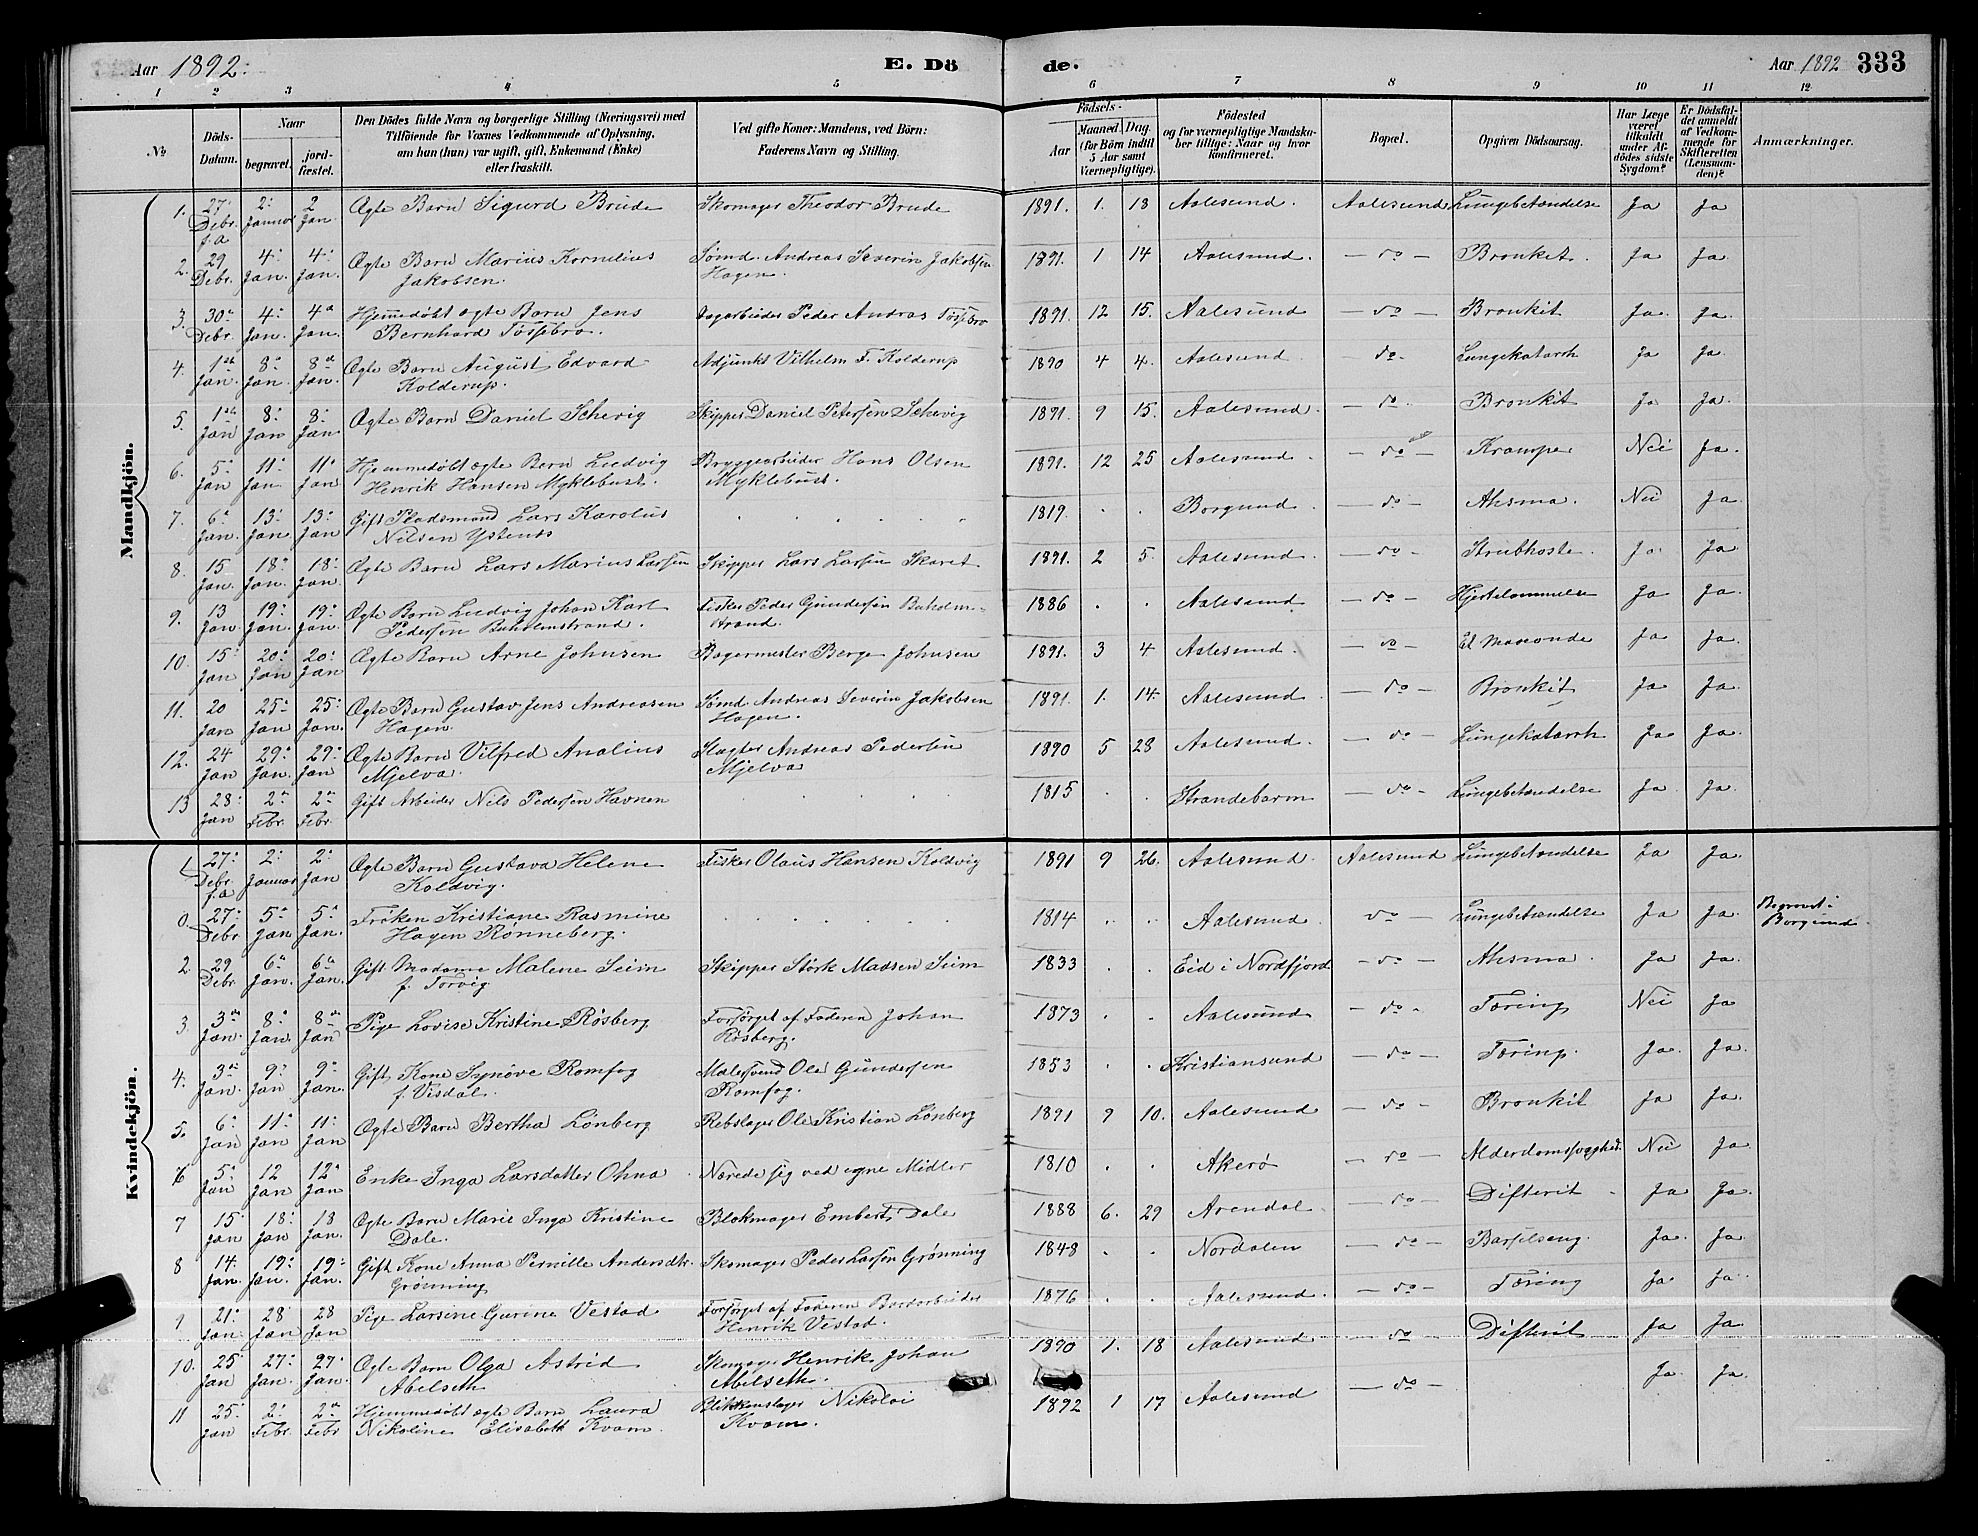 Aar 1892. E. Dö de. Aar 1892 333
1 2 3 4 5 6 7 8 9 10 11 12
No Döds-Datum. Naar begravet. jord-fæstet. Den Dödes fulde Navn og borgerlige Stilling (Næringsvei) med Tilföiende for Voxnes Vedkommende af Oplysning, om hun (han) var ugift, gift, Enkemand (Enke) eller fraskilt. Ved gifte Koner: Mandens, ved Börn: Faderens Navn og Stilling. Födsels- Aar Maaned Dag. (for Börn indtil 5 Aar samt Værnepligtige). Födested og for værnepligtige Mandskaber tillige: Naar og hvor konfirmeret. Bopæl. Opgiven Dödsaarsag. Har Læge været tilkaldt under Afdödes sidste Sygdom? Er Dödsfaldet anmeldt af Vedkommende for Skifteretten (Lensmanden)? Anmærkninger.
Mandkjön.
1. 27 Debr. f.a 2: Januar 2 Jan. Ægte Barn Sigurd Brude Skomager Theodor Brude 1891. 1. 18 Aalesund. Aalesund Lungebetændelse Ja Ja
2. 29 Debr. 4: Jan. 4: Jan. Ægte Barn Marius Kornelius Jakobsen Sømd. Andreas Severin Jakobsen Hagen. 1891. 1 14 Aalesund. — do — Bronkit. Ja Ja.
3. 30 Debr. 4: Jan. 4 Jan. Hjemmedøbt ægte Barn Jens Bernhard Tøssebro. Dagarbeider Peder Andreas Tøssebro 1891. 12 15. Aalesund — do — Bronkit Ja. Ja.
4. 1 Jan. 8 Jan. 8 Jan. Ægte Barn August Edvard Kolderup. Adjunkt Vilhelm F. Kolderup 1890 4 4. Aalesund. — do — Lungekatarrh Ja Ja.
5. 1 Jan 8: Jan 8: Jan Ægte Barn Daniel Schevig Skipper Daniel Petersen Schevig 1891. 9 15. Aalesund. — do — Bronkit Ja Ja.
6. 5 Jan 11: Jan 11 Jan Hjemmedøbt ægte Barn Ludvig Henrik Hansen Myklebust. Bryggearbeider Hans Olsen Myklebust. 1891. 12 25 Aalesund — do — Krampe Nei Ja.
7. 6 Jan. 13 Jan 13 Jan Gift Pladsmand Lars Karolus Nilsen Ystenes 1819. Borgund. — do — Ahsma. Nei Ja.
8. 15 Jan. 18 Jan. 18 Jan. Ægte Barn Lars Marius Larsen Skipper Lars Larsen Skaret 1891. 2 5. Aalesund. — do — Strubhoste. Ja. Ja
9. 13 Jan. 19: Jan. 19: Jan. Ægte Barn Ludvig Johan Karl Pedersen Buholmstrand. Fisker Peder Gundersen Buholmstrand. 1886 Aalesund — do — Hjertelammelse Ja Ja.
10. 15 Jan 20: Jan 20: Jan Ægte Barn Arne Johnsen Bagermester Berge Johnsen 1891. 3 4 Aalesund. — do — Ja Ja.
11. 20 Jan 25 Jan 25: Jan. Ægte Barn Gustav Jens Andreasen Hagen. Sømd. Andreas Severin Jakobsen Hagen. 1891. 1. 14. Aalesund — do — Bronkit Ja Ja.
12. 24 Jan 29 Jan. 29: Jan Ægte Barn Vilfred Analius Mjelva. Slagter Andreas Pedersen Mjelva 1890 5 28 Aalesund. — do — Lungekatarrh Ja. Ja.
13 28: Jan 2 Febr. 2 Febr. Gift Arbeider Nils Pedersen Havnen 1815 Strandebarm — do — Lungebetændelse Ja. Ja.
Kvindekjön.
1. 27: Debr. f.a 2: Januar 2: Jan Ægte Barn Gustava Helene Koldvig. Fisker Olaus Hansen Koldvig 1891 9 26. Aalesund. Aalesund Lungebetændelse Ja Ja.
0. 27: Debr 5 Jan 5 Jan. Frøken Kristiane Rasmine Hagen Rønneberg. 1814 Aalesund. do — Lungebetændelse Ja Ja. Begravet i Borgund.
2 29 Debr. 6 Jan. 6 Jan. Gift Madame Malene Seim f. Torvig Skipper Størk Madsen Seim 1833 Eid i Nordfjord — do — Ahsma. Ja Ja.
3. 3 Jan. 8 Jan. 8 Jan Pige Lovise Kristine Røsberg Forsørget af Faderen Johan Røsberg. 1873 Aalesund — do — Tæring Nei Ja
4. 3 Jan. 9 Jan 9 Jan. Gift Kone Synøve Romfog f. Visdal. Malersvend Ole Gundersen Romfog. 1853 Kristiansund — do — Tæring. Ja. Ja.
5. 6 Jan 11: Jan 11: Jan Ægte Barn Bertha Lønberg Rebslager Ole Kristian Lønberg 1891 9 10. Aalesund — do — Bronkit Ja Ja.
6 5 Jan 12 Jan 12 Jan Enke Inga Larsdatter Ohna Nærede sig ved egne Midler 1810 Akerø — do — Alderdomssvaghed. Nei Ja
7 15 Jan 18: Jan 18 Jan Ægte Barn Marie Inga Kristine Dale. Blokmager Embert Dale 1888 6. 29 Arendal. — do — Difterit Ja Ja.
8 14. Jan. 19: Jan. 19: Jan. Gift Kone Anna Pernille Andersdtr. Grønning Skomager Peder Larsen Grønning 1848 Nordalen — do — Barselseng. Ja. Ja.
9 21: Jan. 28 Jan 28 Jan Pige Larsine Gurine Vestad Forsørget af Faderen Bordarbeider Henrik Vestad. 1876 Aalesund. — do — Tæring Ja. Ja.
10. 25 Jan 27: Jan. 27 Jan. Ægte Barn Olga Astrid Abelseth Skomager Henrik Johan Abelseth. 1890 1. 18 Aalesund — do — Difterit Ja Ja
11 25: Jan 2: Febr. 2 Febr Hjemmedøbt ægte Barn Laura Nikoline Elisabeth Kvam. Blikkenslager Nikolai Kvam. 1892 1 17 Aalesund — do — Ja. Ja.